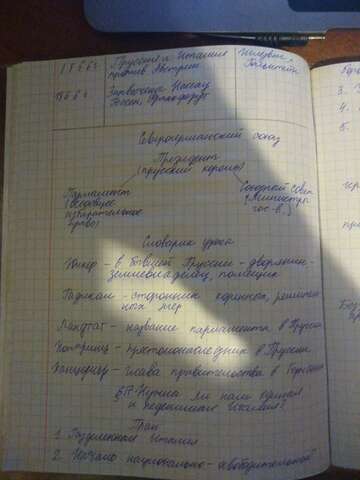 1866 г. Пруссия и Италия
против Австрии
Шлезвиг,
Гольштейн
1866
Захвачены Нассау
Гессен, Франкфурт
Северогерманский союз
Президент
(прусский король)
Парламент
(всеобщее
избирательное
право)
Союзный совет
(Министры
гос-в.)
Словарик урока
Юнкер - в бывшей Пруссии - дворянин-
землевладелец, помещик
Радикал - сторонник коренных, решитель
ных мер
Ландтаг - название парламента в Пруссии
Кронпринц - престолонаследник в Пруссии
Канцлер - глава правительства в Германии
Нужна ли нам единая
и неделимая Италия?
План
1. Раздробленная Италия
2. Начало национально-освободительной
3.
5.